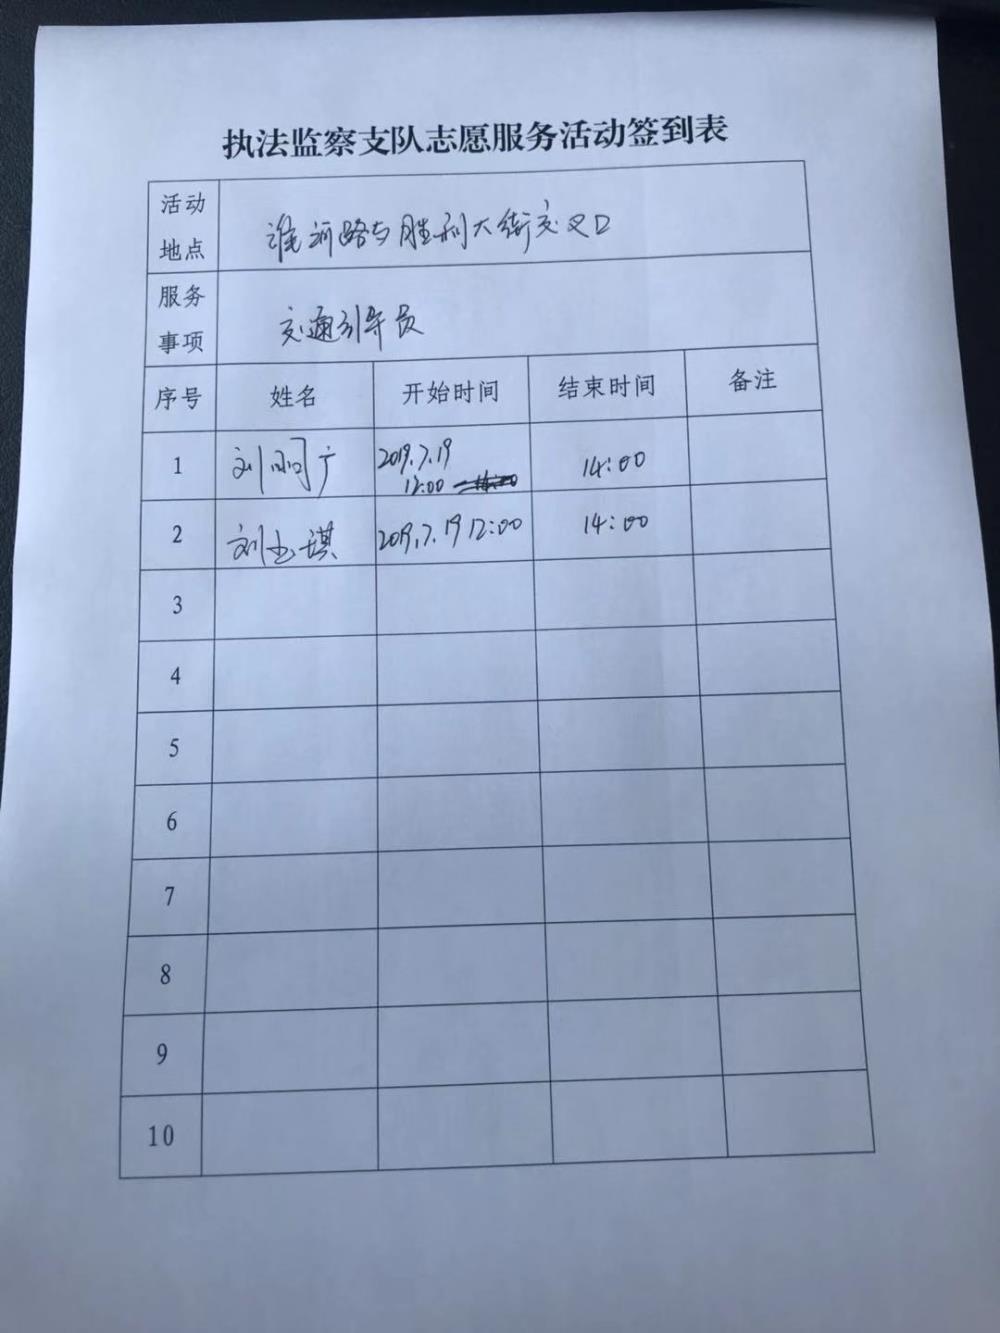 执法监察支队志愿服务活动签到表
活动地点 淮河路与胜利大街交叉口
服务事项 交通引导员
序号 姓名 开始时间 结束时间 备注
1 刘 广 2019.7.19 12:00 14:00
2 刘玉琪 2019.7.19 12:00 14:00
3
4
5
6
7
8
9
10